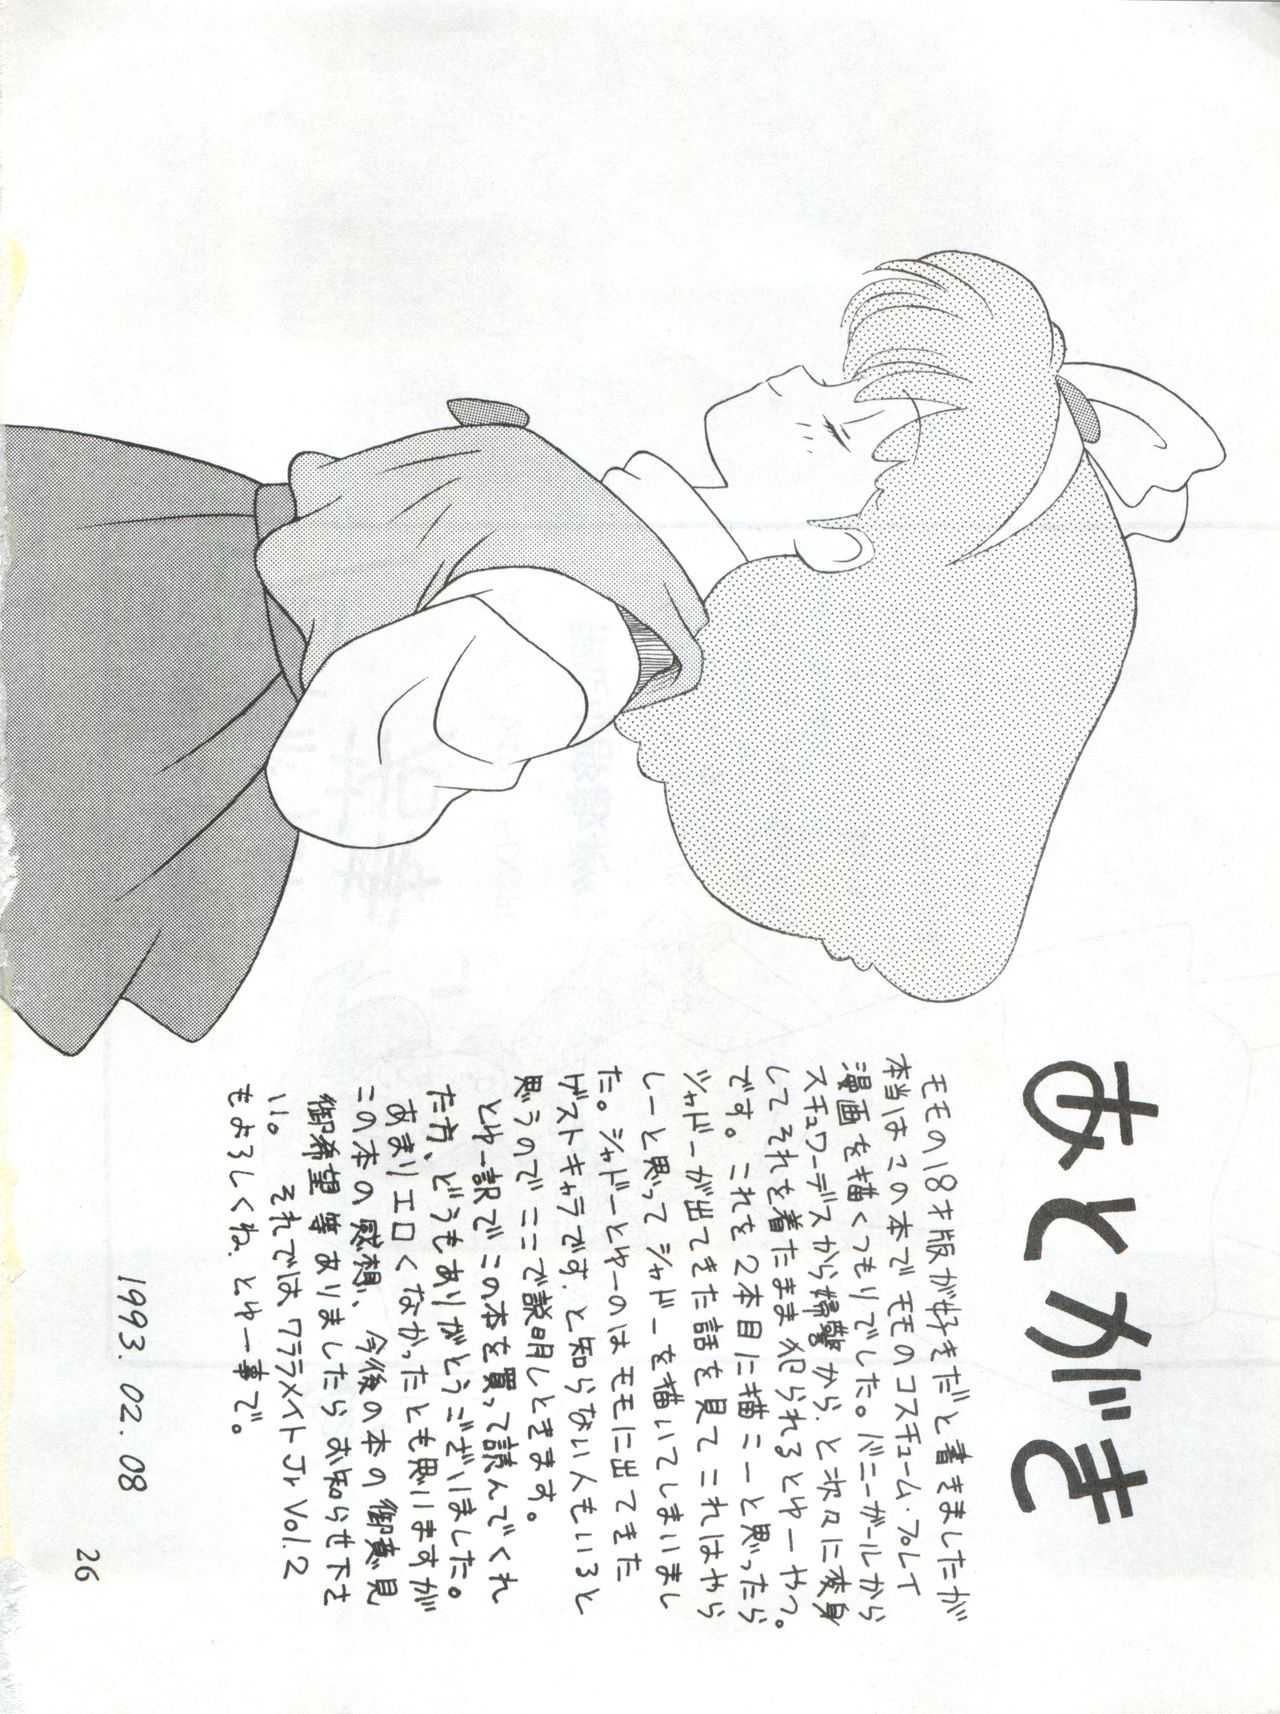 あとがき
モモの18才版が好きだと書きましたが
本当はこの本でモモのコスチューム・プレイ
漫画を描くつもりでした。バニーガールから
スチュワーデスから婦警から、と次々に変身
してそれを着たまま犯られるとゆーやつ。
です。これを2本目に描こーと思ったら
シャドーが出てきた話を見てこれはやら
しーと思ってシャドーを描いてしまいまし
た。シャドーとゆーのはモモに出てきた
ゲストキャラです。と知らない人もいると
思うのでここで説明しときます。
とゆー訳でこの本を買って読んでくれ
た方、どうもありがとうございました。
あまりエロくなかったとも思いますが
この本の感想、今後の本の御意見
御希望等ありましたらお知らせ下さ
い。それではワラライメイトJr Vol.2
もよろしくね、とゆー事で。
1993.02.08
26